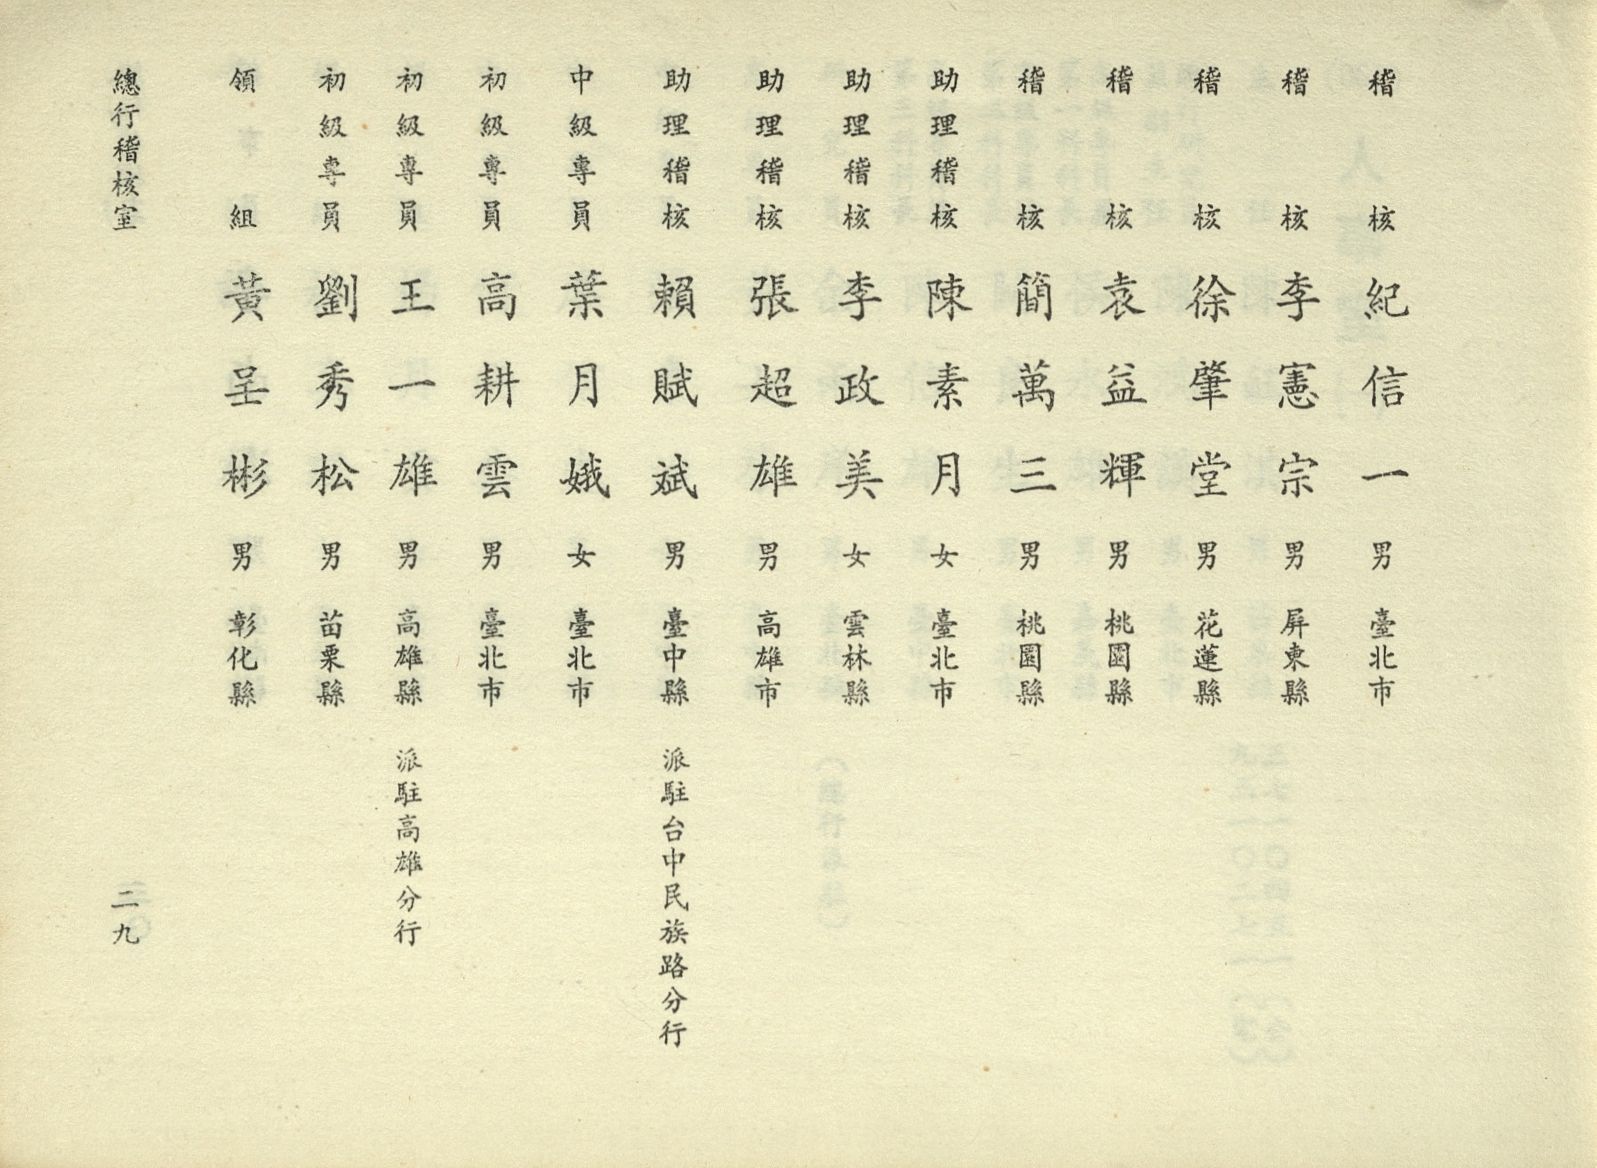 稽核 紀信一 男 臺北市
稽核 李憲宗 男 屏東縣
稽核 徐肇堂 男 花蓮縣
稽核 袁益輝 男 桃園縣
稽核 簡萬三 男 桃園縣
助理稽核 陳素月 女 臺北市
助理稽核 李政美 女 雲林縣
助理稽核 張超雄 男 高雄市
助理稽核 賴賦斌 男 臺中縣 派駐台中民族路分行
中級專員 葉月娥 女 臺北市
初級專員 高耕雲 男 臺北市
初級專員 王一雄 男 高雄縣 派駐高雄分行
初級專員 劉秀松 男 苗栗縣
領組 黃呈彬 男 彰化縣
總行稽核室 二九